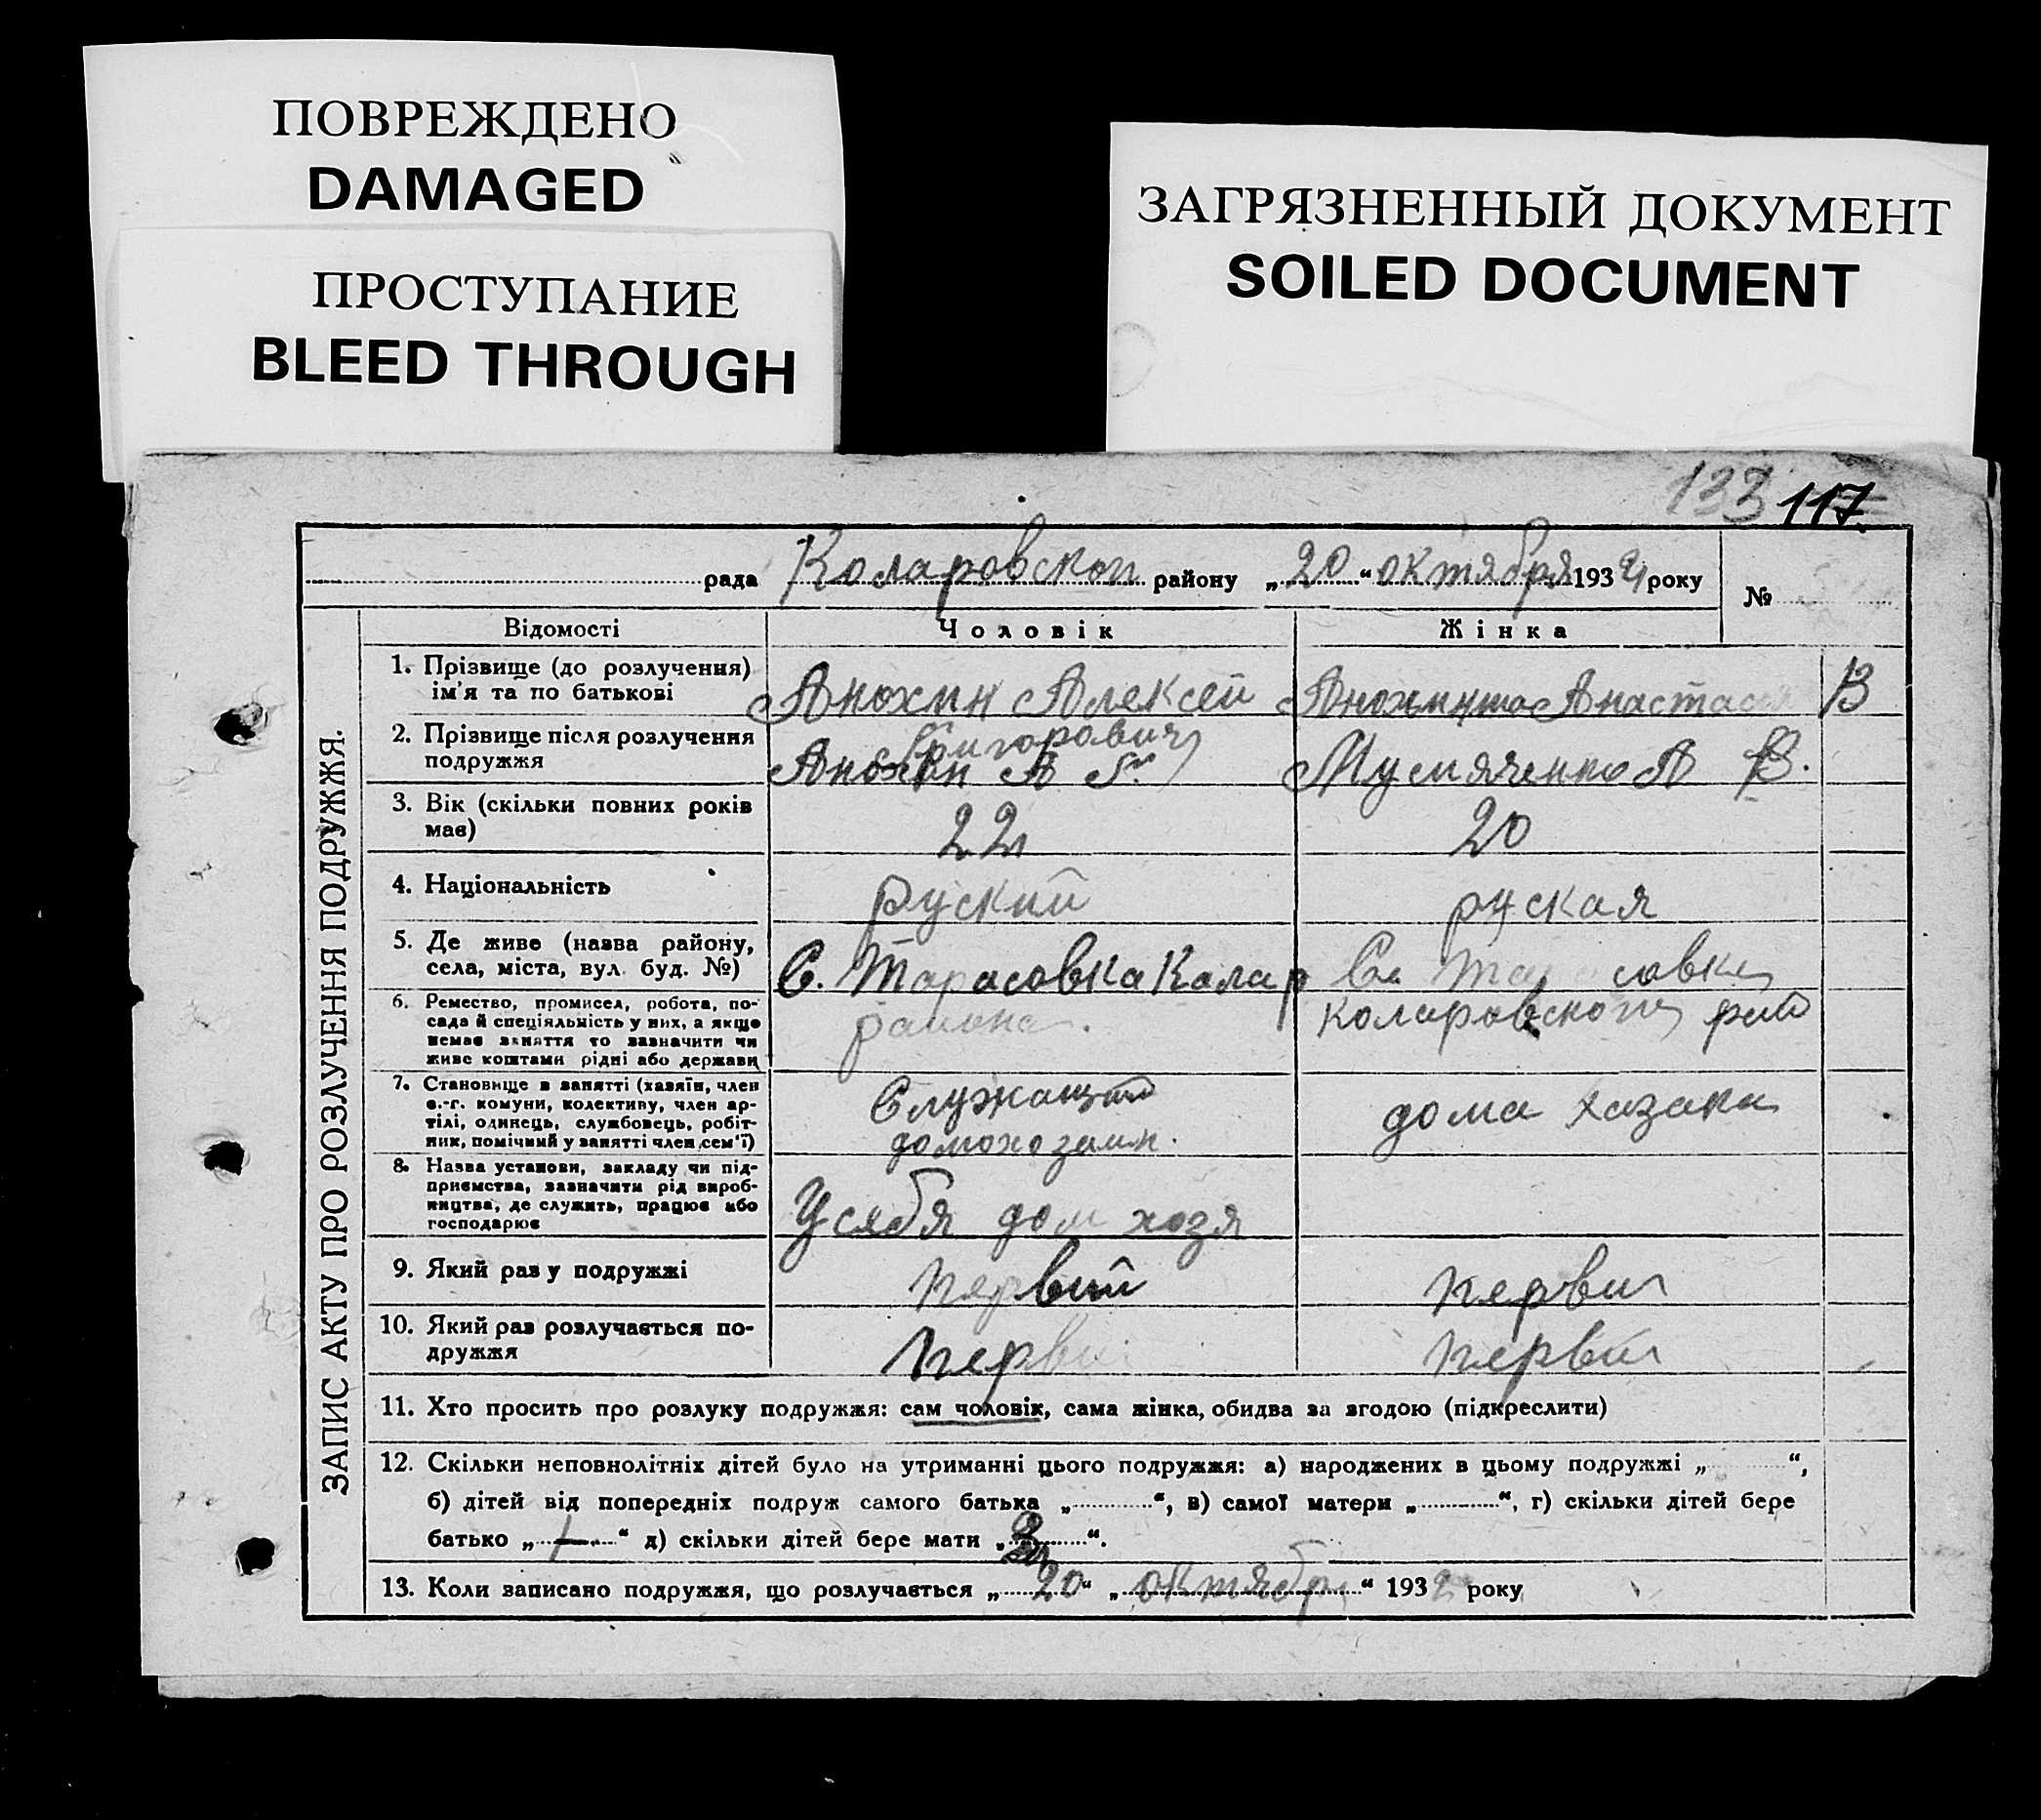 ПОВРЕЖДЕНО
DAMAGED
ПРОСТУПАНИЕ
BLEED THROUGH
ЗАГРЯЗНЕННЫЙ ДОКУМЕНТ
SOILED DOCUMENT
133 117.
рада Коларовской району „20“ октября 1932 року №
ЗАПИС АКТУ ПРО РОЗЛУЧЕННЯ ПОДРУЖЖЯ.
Відомості Чоловік Жінка
1. Прізвище (до розлучення) ім'я та по батькові
Анохин Алексей Григорович
Анохина Анастасия В
2. Прізвище після розлучення подружжя
Анохин А Г.
А В.
3. Вік (скільки повних років має)
22 20
4. Національність
руский руская
5. Де живе (назва району, села, міста, вул. буд. №)
С. Тарасовка Калар района.
С. Тарасовка Коларовского рай
6. Ремество, промисел, робота, посада й спеціяльність у них, а якщо немає заняття то зазначити чи живе коштами рідні або держави
7. Становище в занятті (хазяїн, член с.-г. комуни, колективу, член артілі, одинець, службовець, робітник, помічний у занятті член сем'ї)
Служащий
дома
8. Назва установи, закладу чи підприємства, зазначити рід виробництва, де служить, працює або господарює
У себя дом хозя
9. Який раз у подружжі
первий перви
10. Який раз розлучається подружжя
перви перви
11. Хто просить про розлуку подружжя: сам чоловік, сама жінка, обидва за згодою (підкреслити)
12. Скільки неповнолітніх дітей було на утриманні цього подружжя: а) народжених в цьому подружжі „ “,
б) дітей від попередніх подруж самого батька „ “, в) самої матери „ “, г) скільки дітей бере
батько „ “ д) скільки дітей бере мати „ “.
13. Коли записано подружжя, що розлучається „20“ „октября“ 1932 року